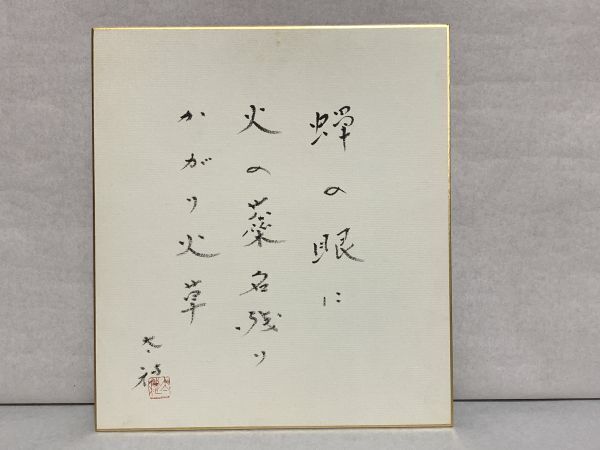 蝉の眼に
火の蘂名残り
かがり火草